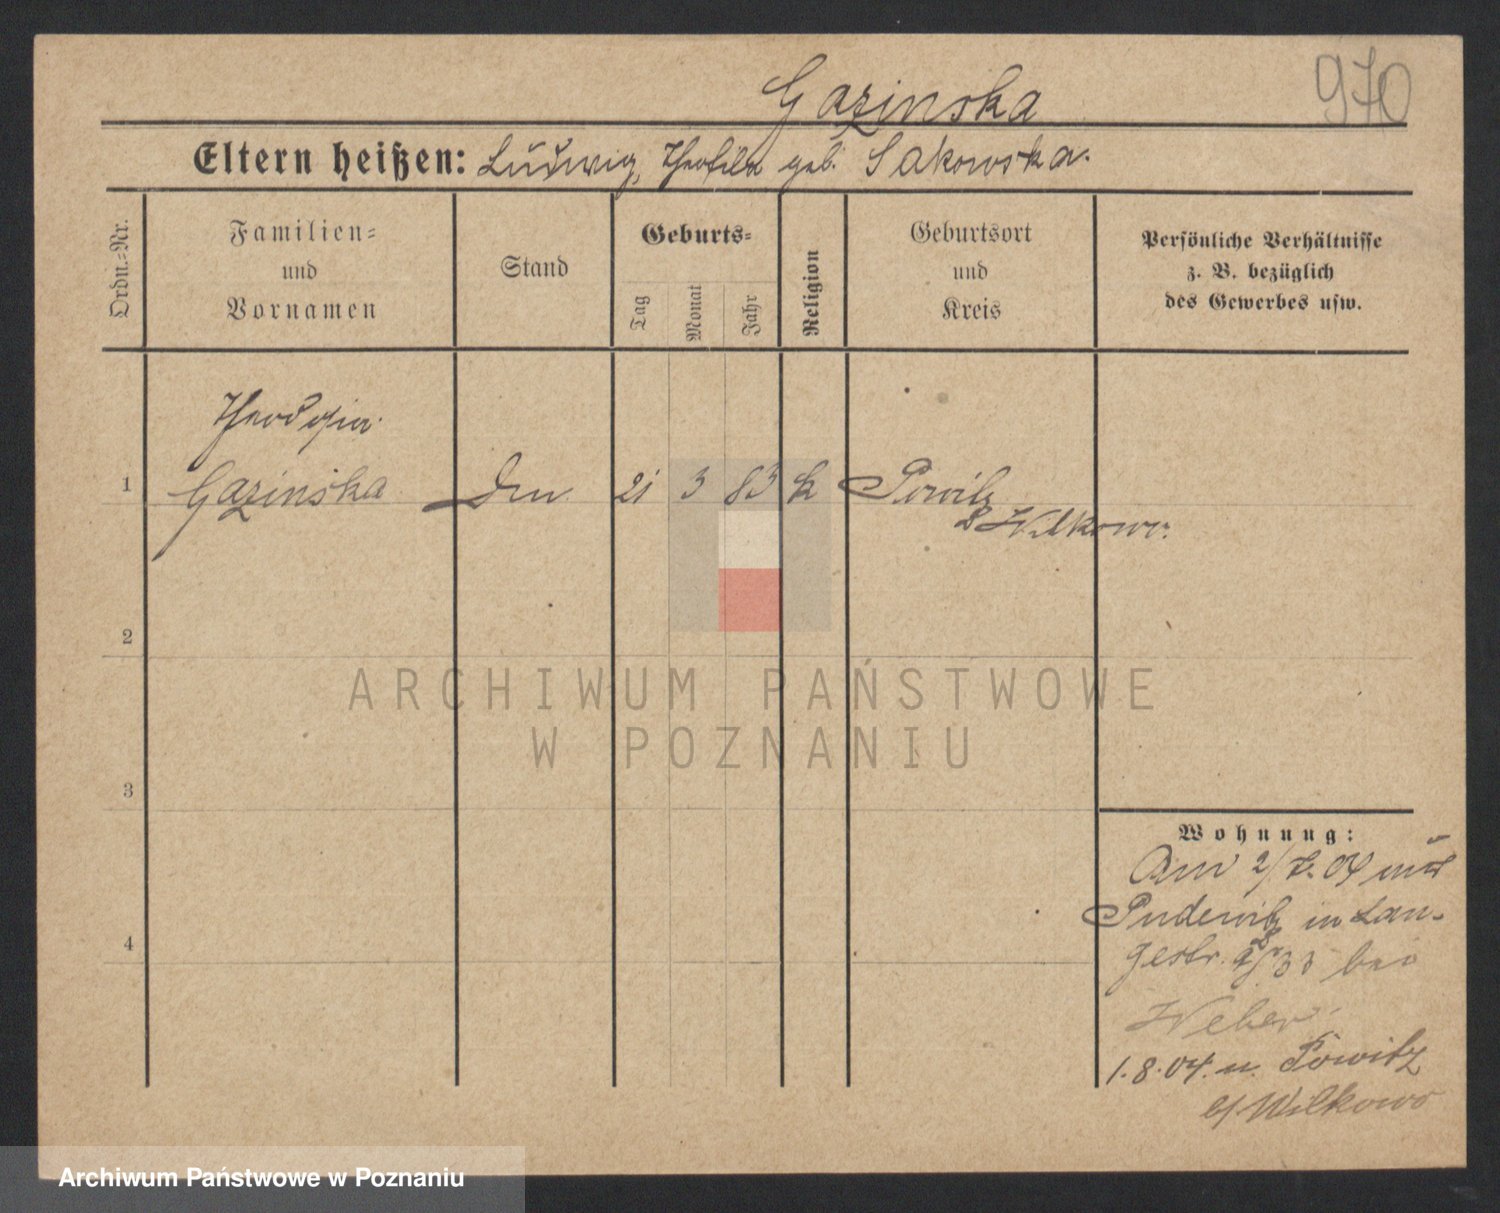 970
Gazinska
Eltern heißen: Ludwig, Theofila geb. Sakowska.
Ordn.-Nr.
Familien-
und
Vornamen
Stand
Geburts-
Tag
Monat
Jahr
Religion
Geburtsort
und
Kreis
Persönliche Verhältnisse
z. B. bezüglich
des Gewerbes usw.
Theodosia
1 Gazinska 21 3 83 k Powitz
Wilkowo.
2
3
4
ARCHIWUM PAŃSTWOWE
W POZNANIU
Wohnung:
Am 2/7.04 aus
Pudewitz in Lan-
gestr. 33 bei
Weber.
1.8.04. n. Powitz
Wilkowo
Archiwum Państwowe w Poznaniu